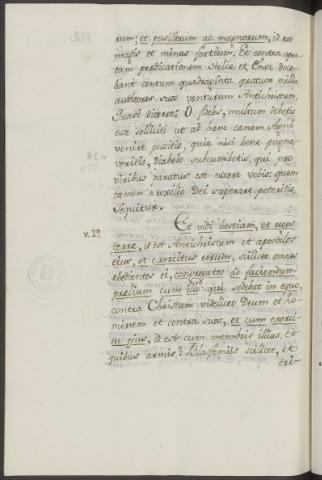 rum; et pusillorum ac magnorum, id est
magis et minus fortium. Et contra aper-
tam prædicationem Heliæ, et Enoc doce-
bant centum quadraginta quatuor millia
auditores suos venturum Antichristum.
Quasi diceret: O fideles, multum debetis
esse solliciti ut ad hanc cænam Agni
venire possitis, quia nisi bene pugna-
veritis, diabolo subcumbetis, qui pro
viribus paratus est nocere vobis: quem
tamen auxilio Dei superare poteritis.
Sequitur.
v. 19. Et vidi bestiam, et reges
terræ, id est Antichristum et apostolos
eius, et exercitus eorum, scilicet omnes
obedientes ei, congregatos ad faciendum
prælium cum illo qui sedebat in equo,
contra Christum videlicet Deum et ho-
minem et contra suos, et cum exerci-
tu ejus, id est cum membris illius. Et
quibus armis? Blasfemiis scilicet, et
tri-